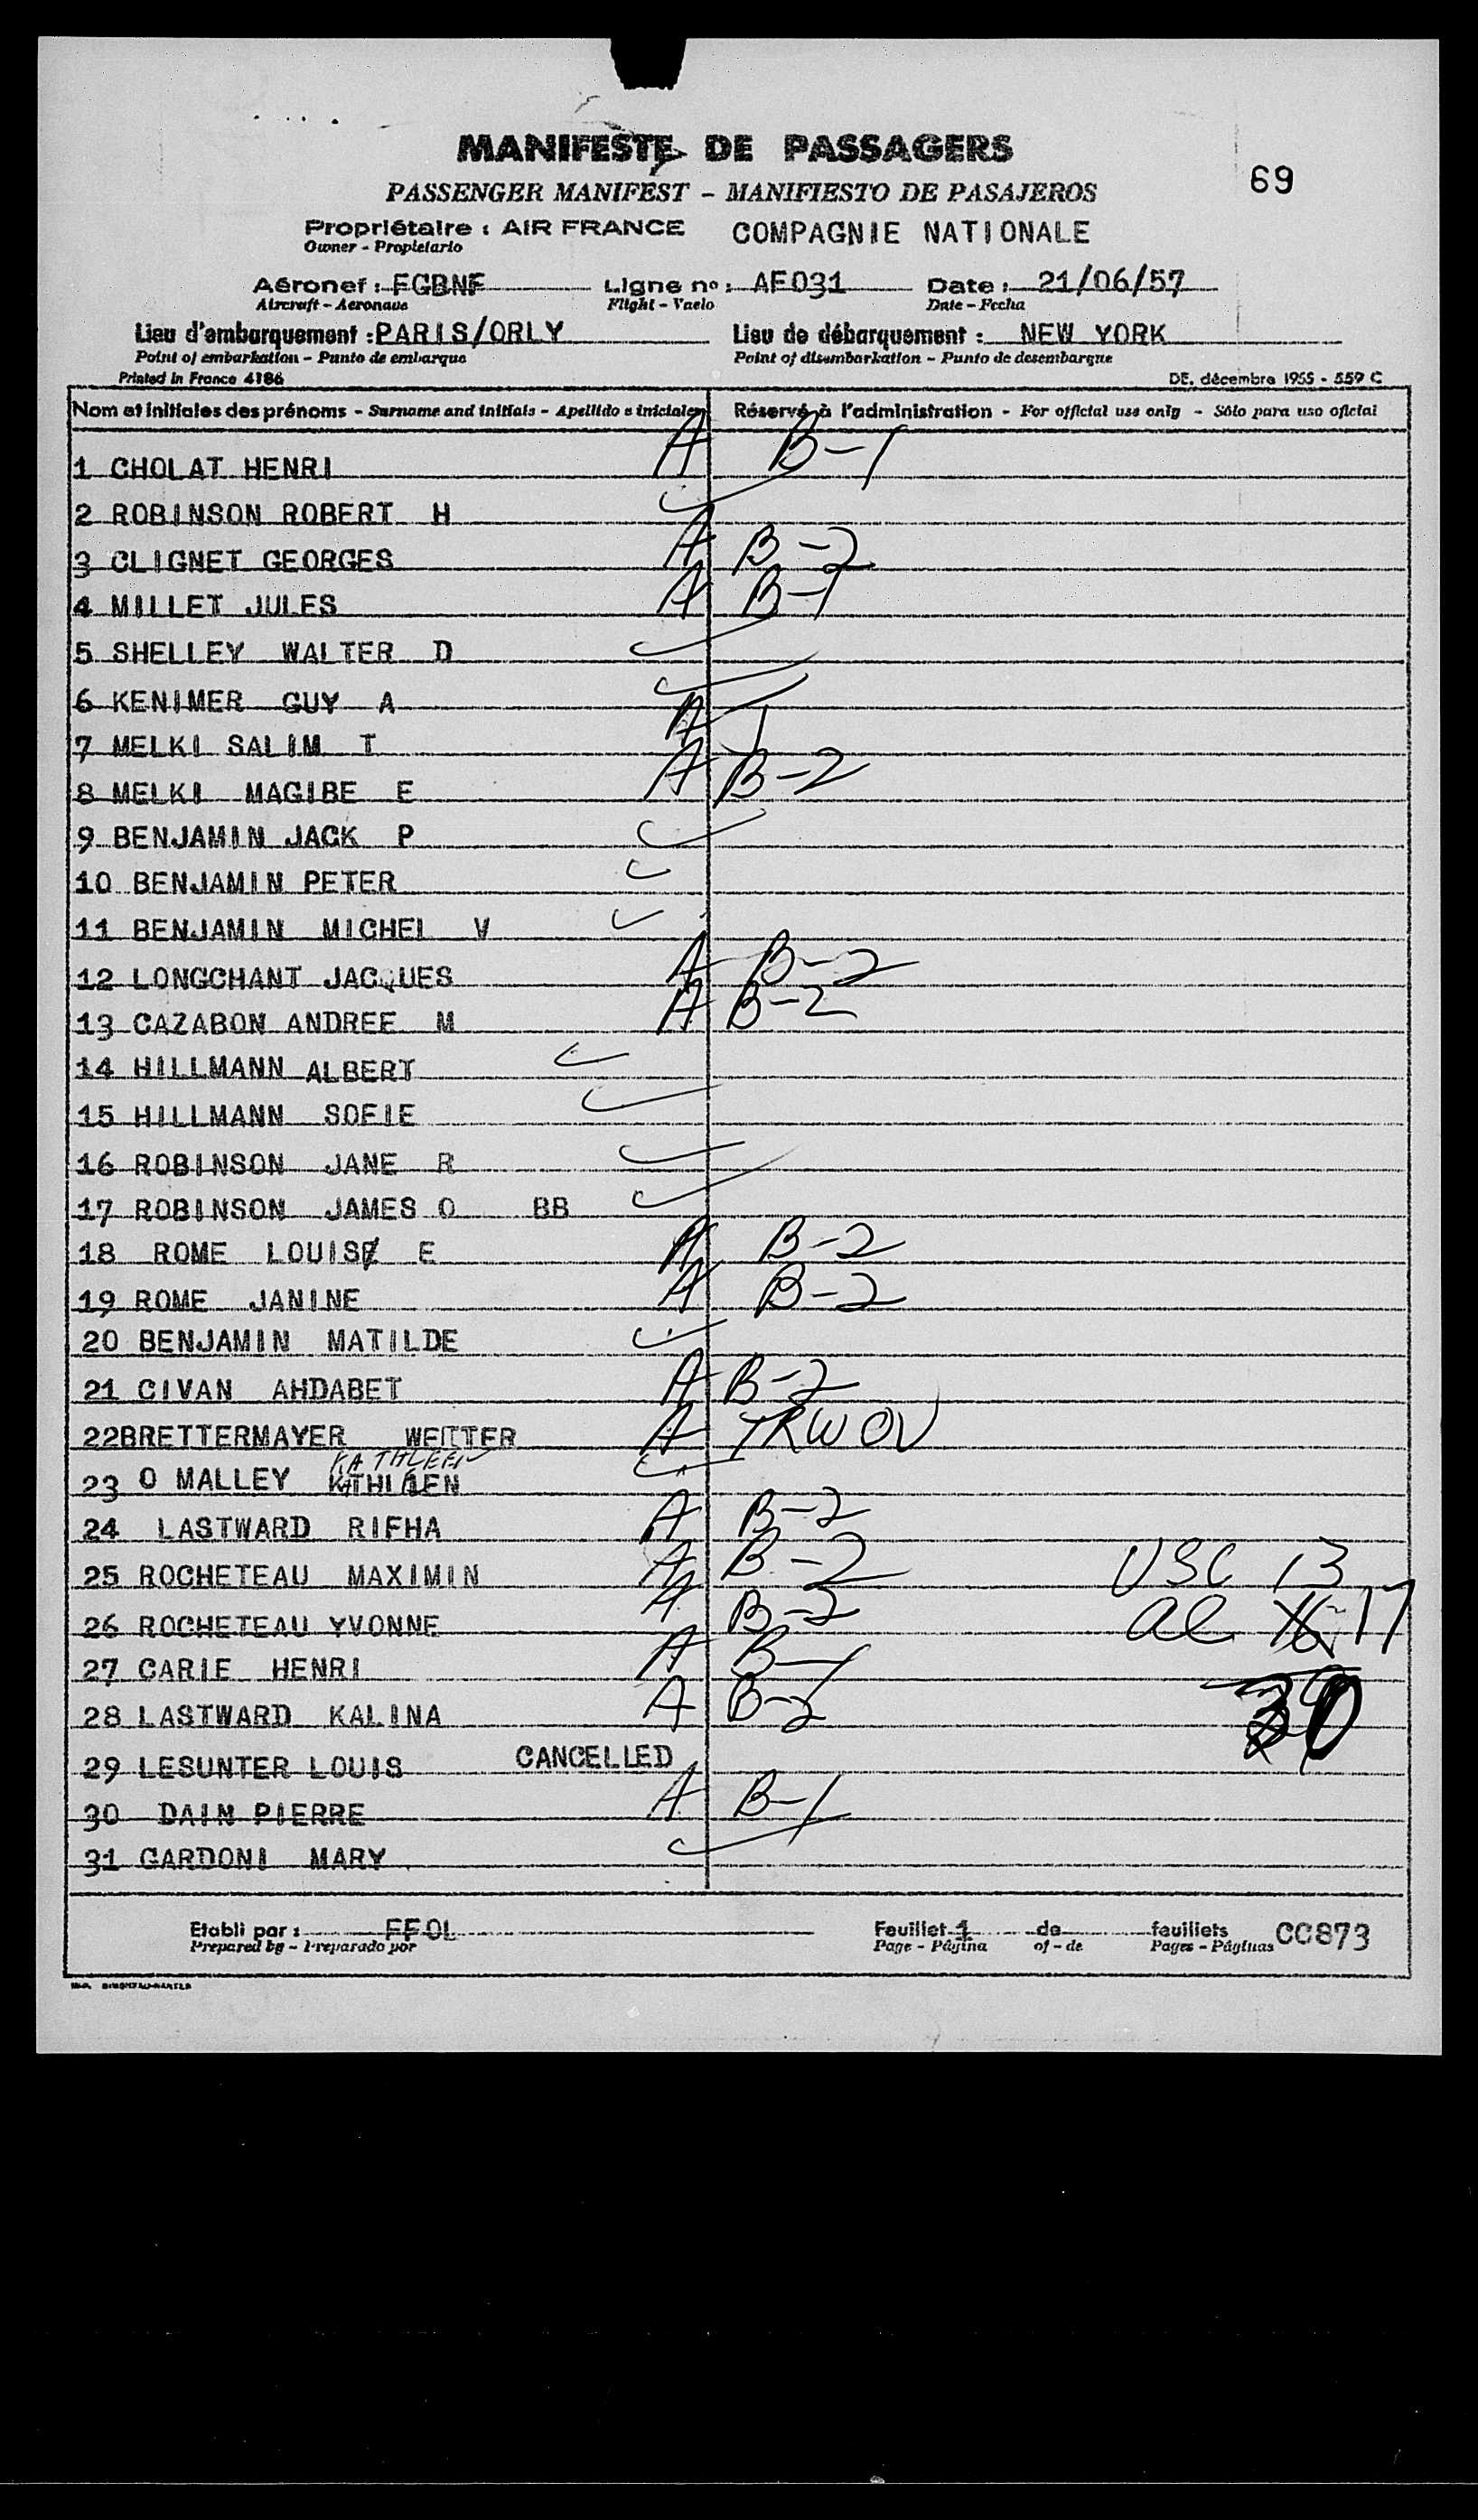 MANIFESTE DE PASSAGERS
PASSENGER MANIFEST - MANIFIESTO DE PASAJEROS
69
Propriétaire : AIR FRANCE COMPAGNIE NATIONALE
Owner - Propietario
Aéronef : FGBNF Ligne no : AF031 Date : 21/06/57
Aircraft - Aeronave Flight - Vuelo Date - Fecha
Lieu d'embarquement : PARIS/ORLY Lieu de débarquement : NEW YORK
Point of embarkation - Punto de embarque Point of disembarkation - Punto de desembarque
Printed in France 4186 DE. décembre 1955 - 559 C
Nom et initiales des prénoms - Surname and initials - Apellido e iniciales Réservé à l'administration - For official use only - Sólo para uso oficial
1 CHOLAT HENRI A B-1
2 ROBINSON ROBERT H
3 CLIGNET GEORGES A B-2
4 MILLET JULES A B-1
5 SHELLEY WALTER D
6 KENIMER GUY A
7 MELKI SALIM T A
8 MELKI MAGIBE E A B-2
9 BENJAMIN JACK P
10 BENJAMIN PETER
11 BENJAMIN MICHEL V
12 LONGCHANT JACQUES A B-2
13 CAZABON ANDREE M A B-2
14 HILLMANN ALBERT
15 HILLMANN SOFIE
16 ROBINSON JANE R
17 ROBINSON JAMES O BB
18 ROME LOUIS E A B-2
19 ROME JANINE A B-2
20 BENJAMIN MATILDE
21 CIVAN AHDABET A B-2
22BRETTERMAYER WEITTER A TRWOV
KATHLEEN
23 O MALLEY
24 LASTWARD RIFHA A B-2
25 ROCHETEAU MAXIMIN A B-2 USC 13
26 ROCHETEAU YVONNE A B-2 al 17
27 CARIE HENRI A B-1
28 LASTWARD KALINA A B-2
29 LESUNTER LOUIS CANCELLED
30 DAIN PIERRE A B-1
31 GARDONI MARY
Etabli par : FFOL Feuillet 1 de feuillets CC873
Prepared by - Preparado por Page - Página of - de Pages - Páginas